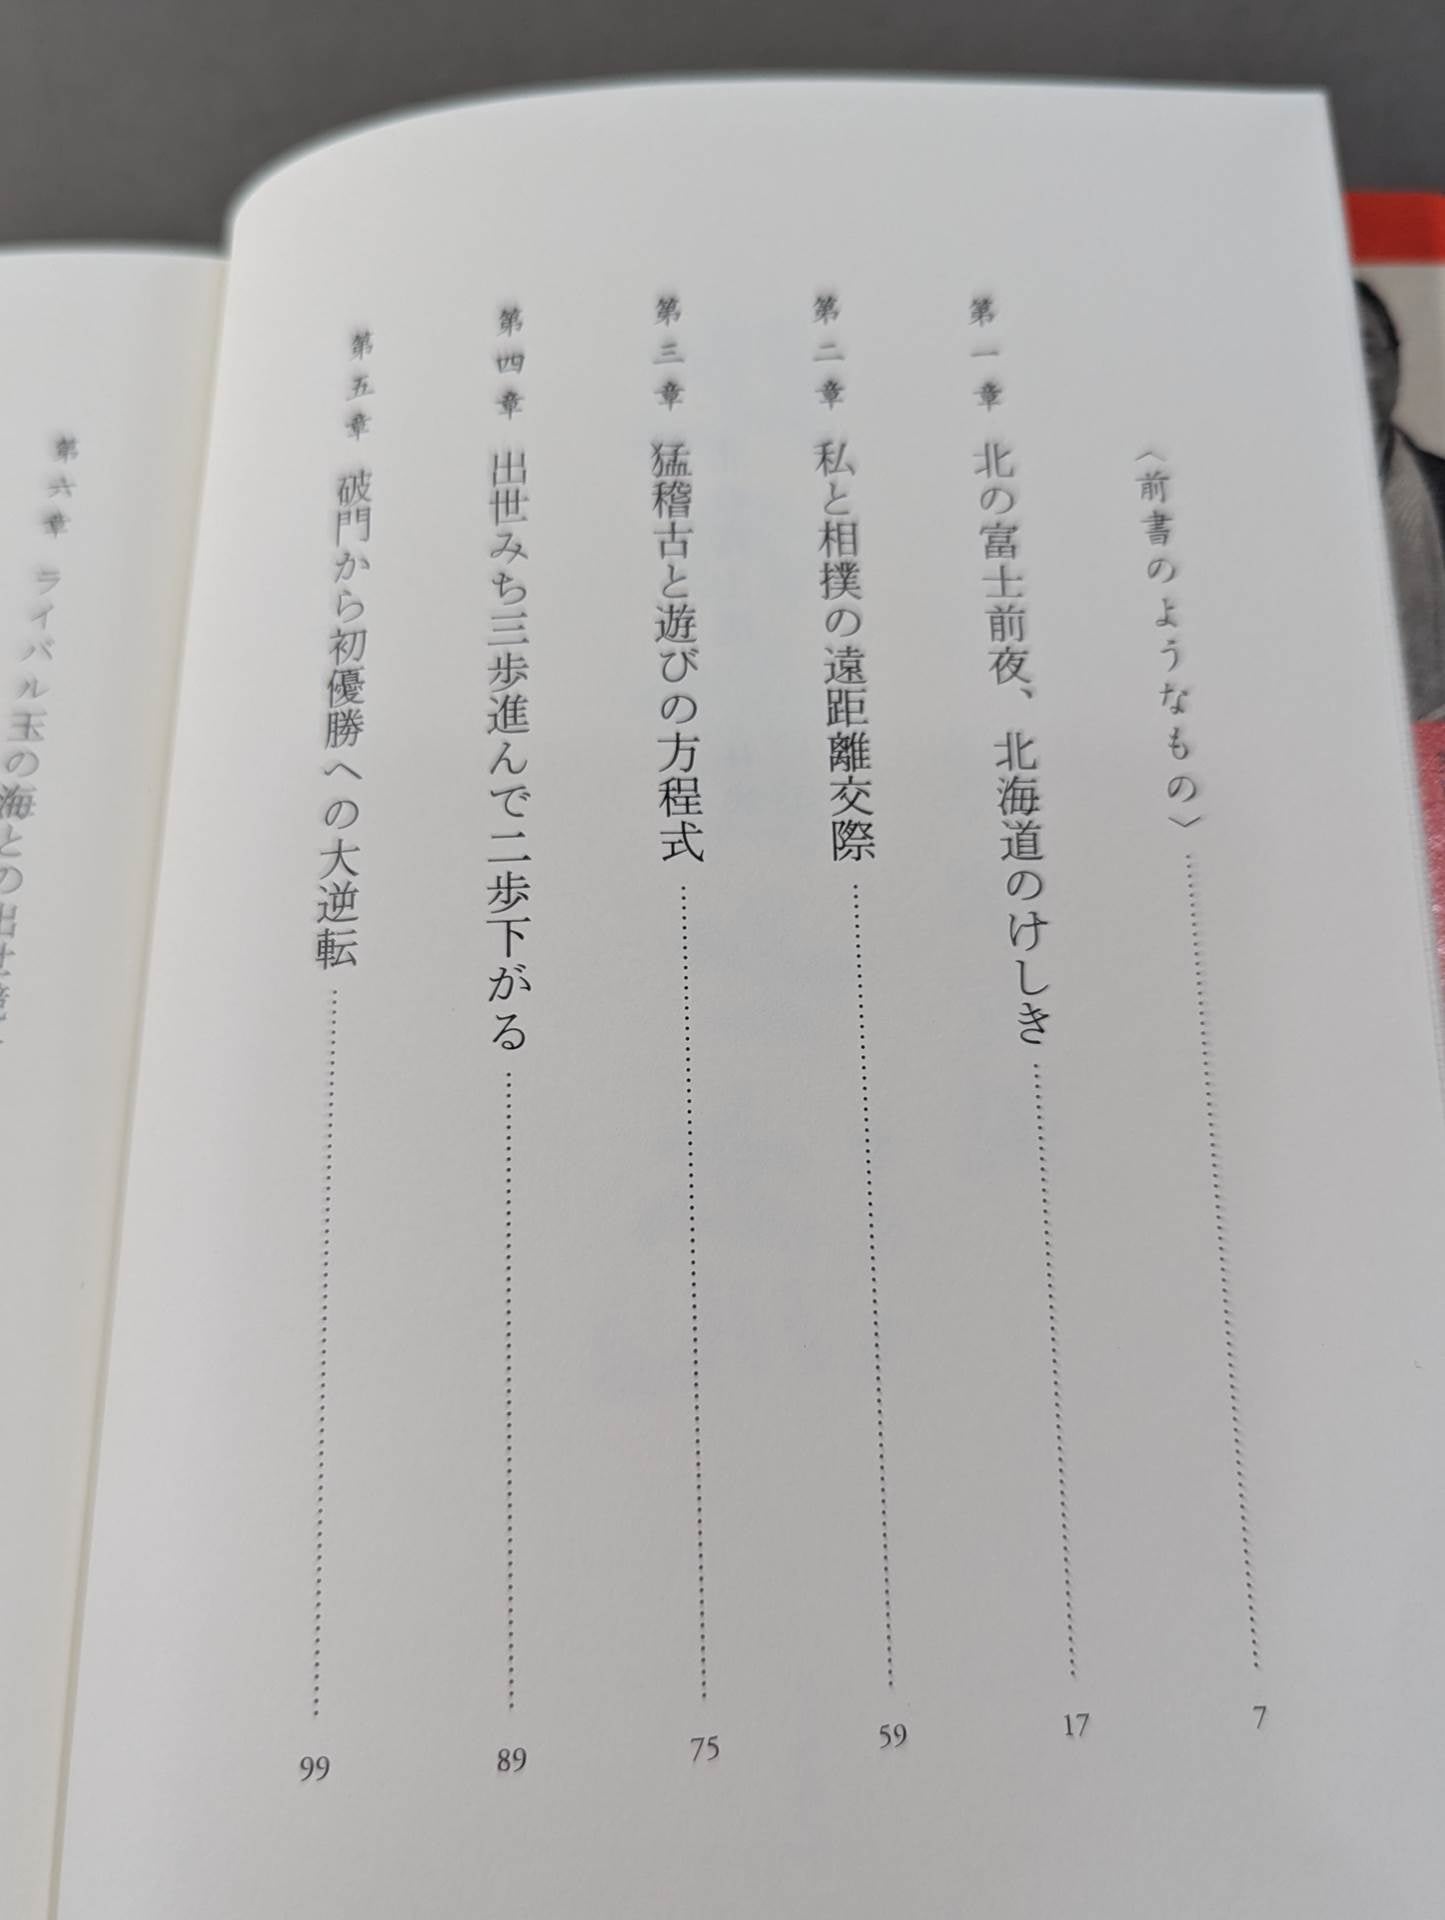 〈前書のようなもの〉……………7
第一章 北の富士前夜、北海道のけしき……………17
第二章 私と相撲の遠距離交際……………59
第三章 猛稽古と遊びの方程式……………75
第四章 出世みち三歩進んで二歩下がる……………89
第五章 破門から初優勝への大逆転……………99
第六章 ライバル玉の海との出世